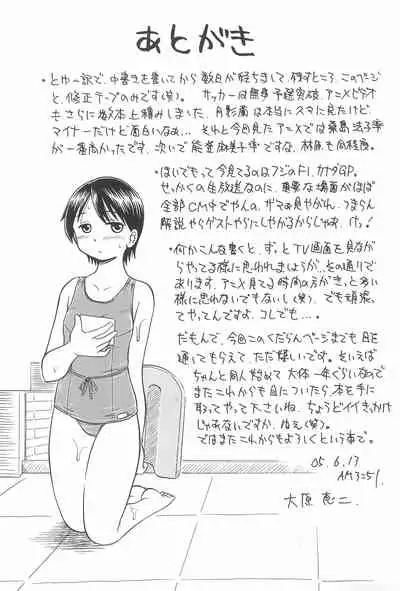 あとがき
・とゆー訳で、中書きを書いてから数日が経ちまして、残すところ、このページ
と、修正テープのみです(笑)。サッカーは無事予選突破、アニメビデオ
もさらに数本上積みしました。月影蘭は本当にスマに見たけど、
マイナーだけど面白いなぁ…。それと今回見たアニメでは桑島法子率
が一番高かったです。次いで能登麻美子率ですな。
・はいでもって今見てるのはフジのF1、カナダGP。
せっかくの生放送なのに、重要な場面がほぼ
全部CM中でやんの。ザマぁ見やがれ、つまらん
解説やらゲストやらにしやがるからじゃぁ、けっ!
・何かこんな書くと、ずっとTV画面を見ながら
やってる様に思われましょうが、その通りで
あります。アニメ見てる時間の方がき、と多い
様に思れないでもないし(笑)。でも頑張っ
てやってんですよ、コレでも…。
だもんで、今回このくだらんページまでも目を
通してもらえて、ただ嬉しいです。そういえば
ちゃんと同人始めて大体一年ぐらいなんで
またこれからも目についたら、本を手に
取ってやって下さいね、ちょうどイイきっかけ
じゃぁないですか、ねぇ(笑)。
ではまたこれからもよろしくという事で。
05.6.13
AM3:51
大原